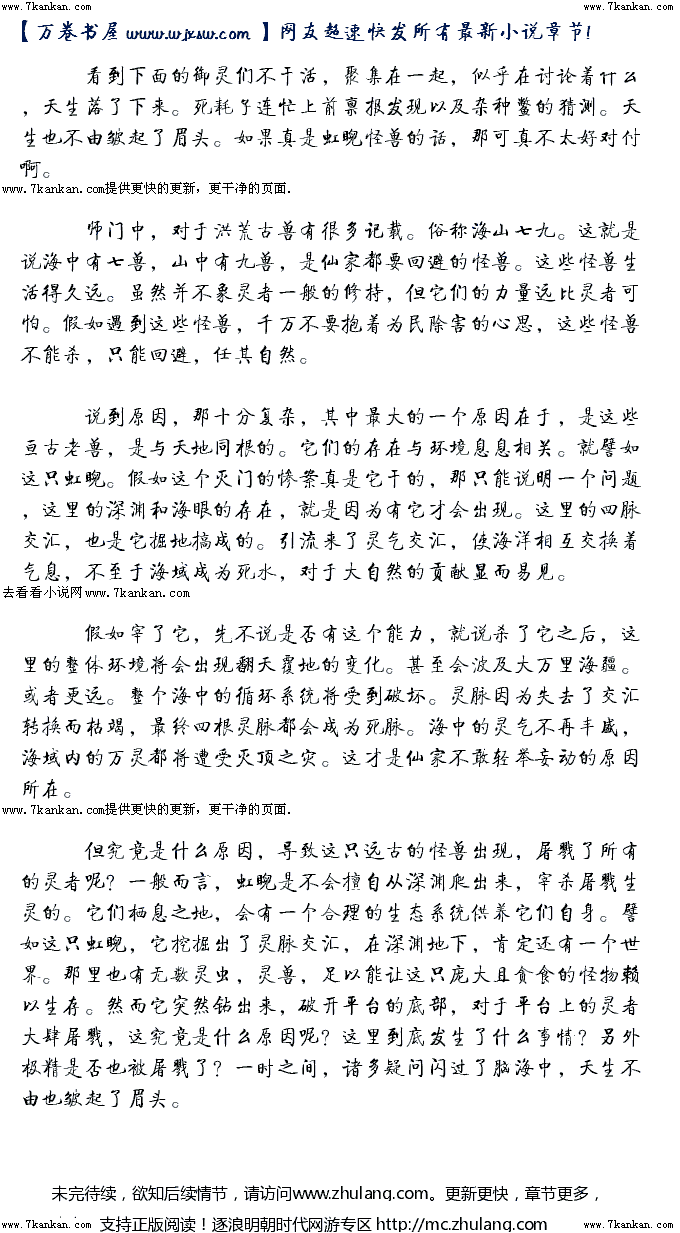 www.7kankan.com www.7kankan.com
【万卷书屋 www.wjxsw.com 】网友超速快发所有最新小说章节!
看到下面的御灵们不干活，聚集在一起，似乎在讨论着什么
，天生落了下来。死耗子连忙上前禀报发现以及杂种鳖的猜测。天
生也不由皱起了眉头。如果真是虹睨怪兽的话，那可真不太好对付
啊。
www.7kankan.com提供更快的更新，更干净的页面.
师门中，对于洪荒古兽有很多记载。俗称海山七九。这就是
说海中有七兽，山中有九兽，是仙家都要回避的怪兽。这些怪兽生
活得久远。虽然并不象灵者一般的修持，但它们的力量远比灵者可
怕。假如遇到这些怪兽，千万不要抱着为民除害的心思，这些怪兽
不能杀，只能回避，任其自然。
说到原因，那十分复杂，其中最大的一个原因在于，是这些
亘古老兽，是与天地同根的。它们的存在与环境息息相关。就譬如
这只虹睨。假如这个灭门的惨案真是它干的，那只能说明一个问题
，这里的深渊和海眼的存在，就是因为有它才会出现。这里的四脉
交汇，也是它掘地搞成的。引流来了灵气交汇，使海洋相互交换着
气息，不至于海域成为死水，对于大自然的贡献显而易见。
去看看小说网www.7kankan.com
假如宰了它，先不说是否有这个能力，就说杀了它之后，这
里的整体环境将会出现翻天覆地的变化。甚至会波及大万里海疆。
或者更远。整个海中的循环系统将受到破坏。灵脉因为失去了交汇
转换而枯竭，最终四根灵脉都会成为死脉。海中的灵气不再丰盛，
海域内的万灵都将遭受灭顶之灾。这才是仙家不敢轻举妄动的原因
所在。
www.7kankan.com提供更快的更新，更干净的页面.
但究竟是什么原因，导致这只远古的怪兽出现，屠戮了所有
的灵者呢？一般而言，虹睨是不会擅自从深渊爬出来，宰杀屠戮生
灵的。它们栖息之地，会有一个合理的生态系统供养它们自身。譬
如这只虹睨，它挖掘出了灵脉交汇，在深渊地下，肯定还有一个世
界。那里也有无数灵虫，灵兽，足以能让这只庞大且贪食的怪物赖
以生存。然而它突然钻出来，破开平台的底部，对于平台上的灵者
大肆屠戮，这究竟是什么原因呢？这里到底发生了什么事情？另外
极精是否也被屠戮了？一时之间，诸多疑问闪过了脑海中，天生不
由也皱起了眉头。
未完待续，欲知后续情节，请访问www.zhulang.com。更新更快，章节更多，
www.7kankan.com 支持正版阅读！逐浪明朝时代网游专区 http://mc.zhulang.com www.7kankan.com